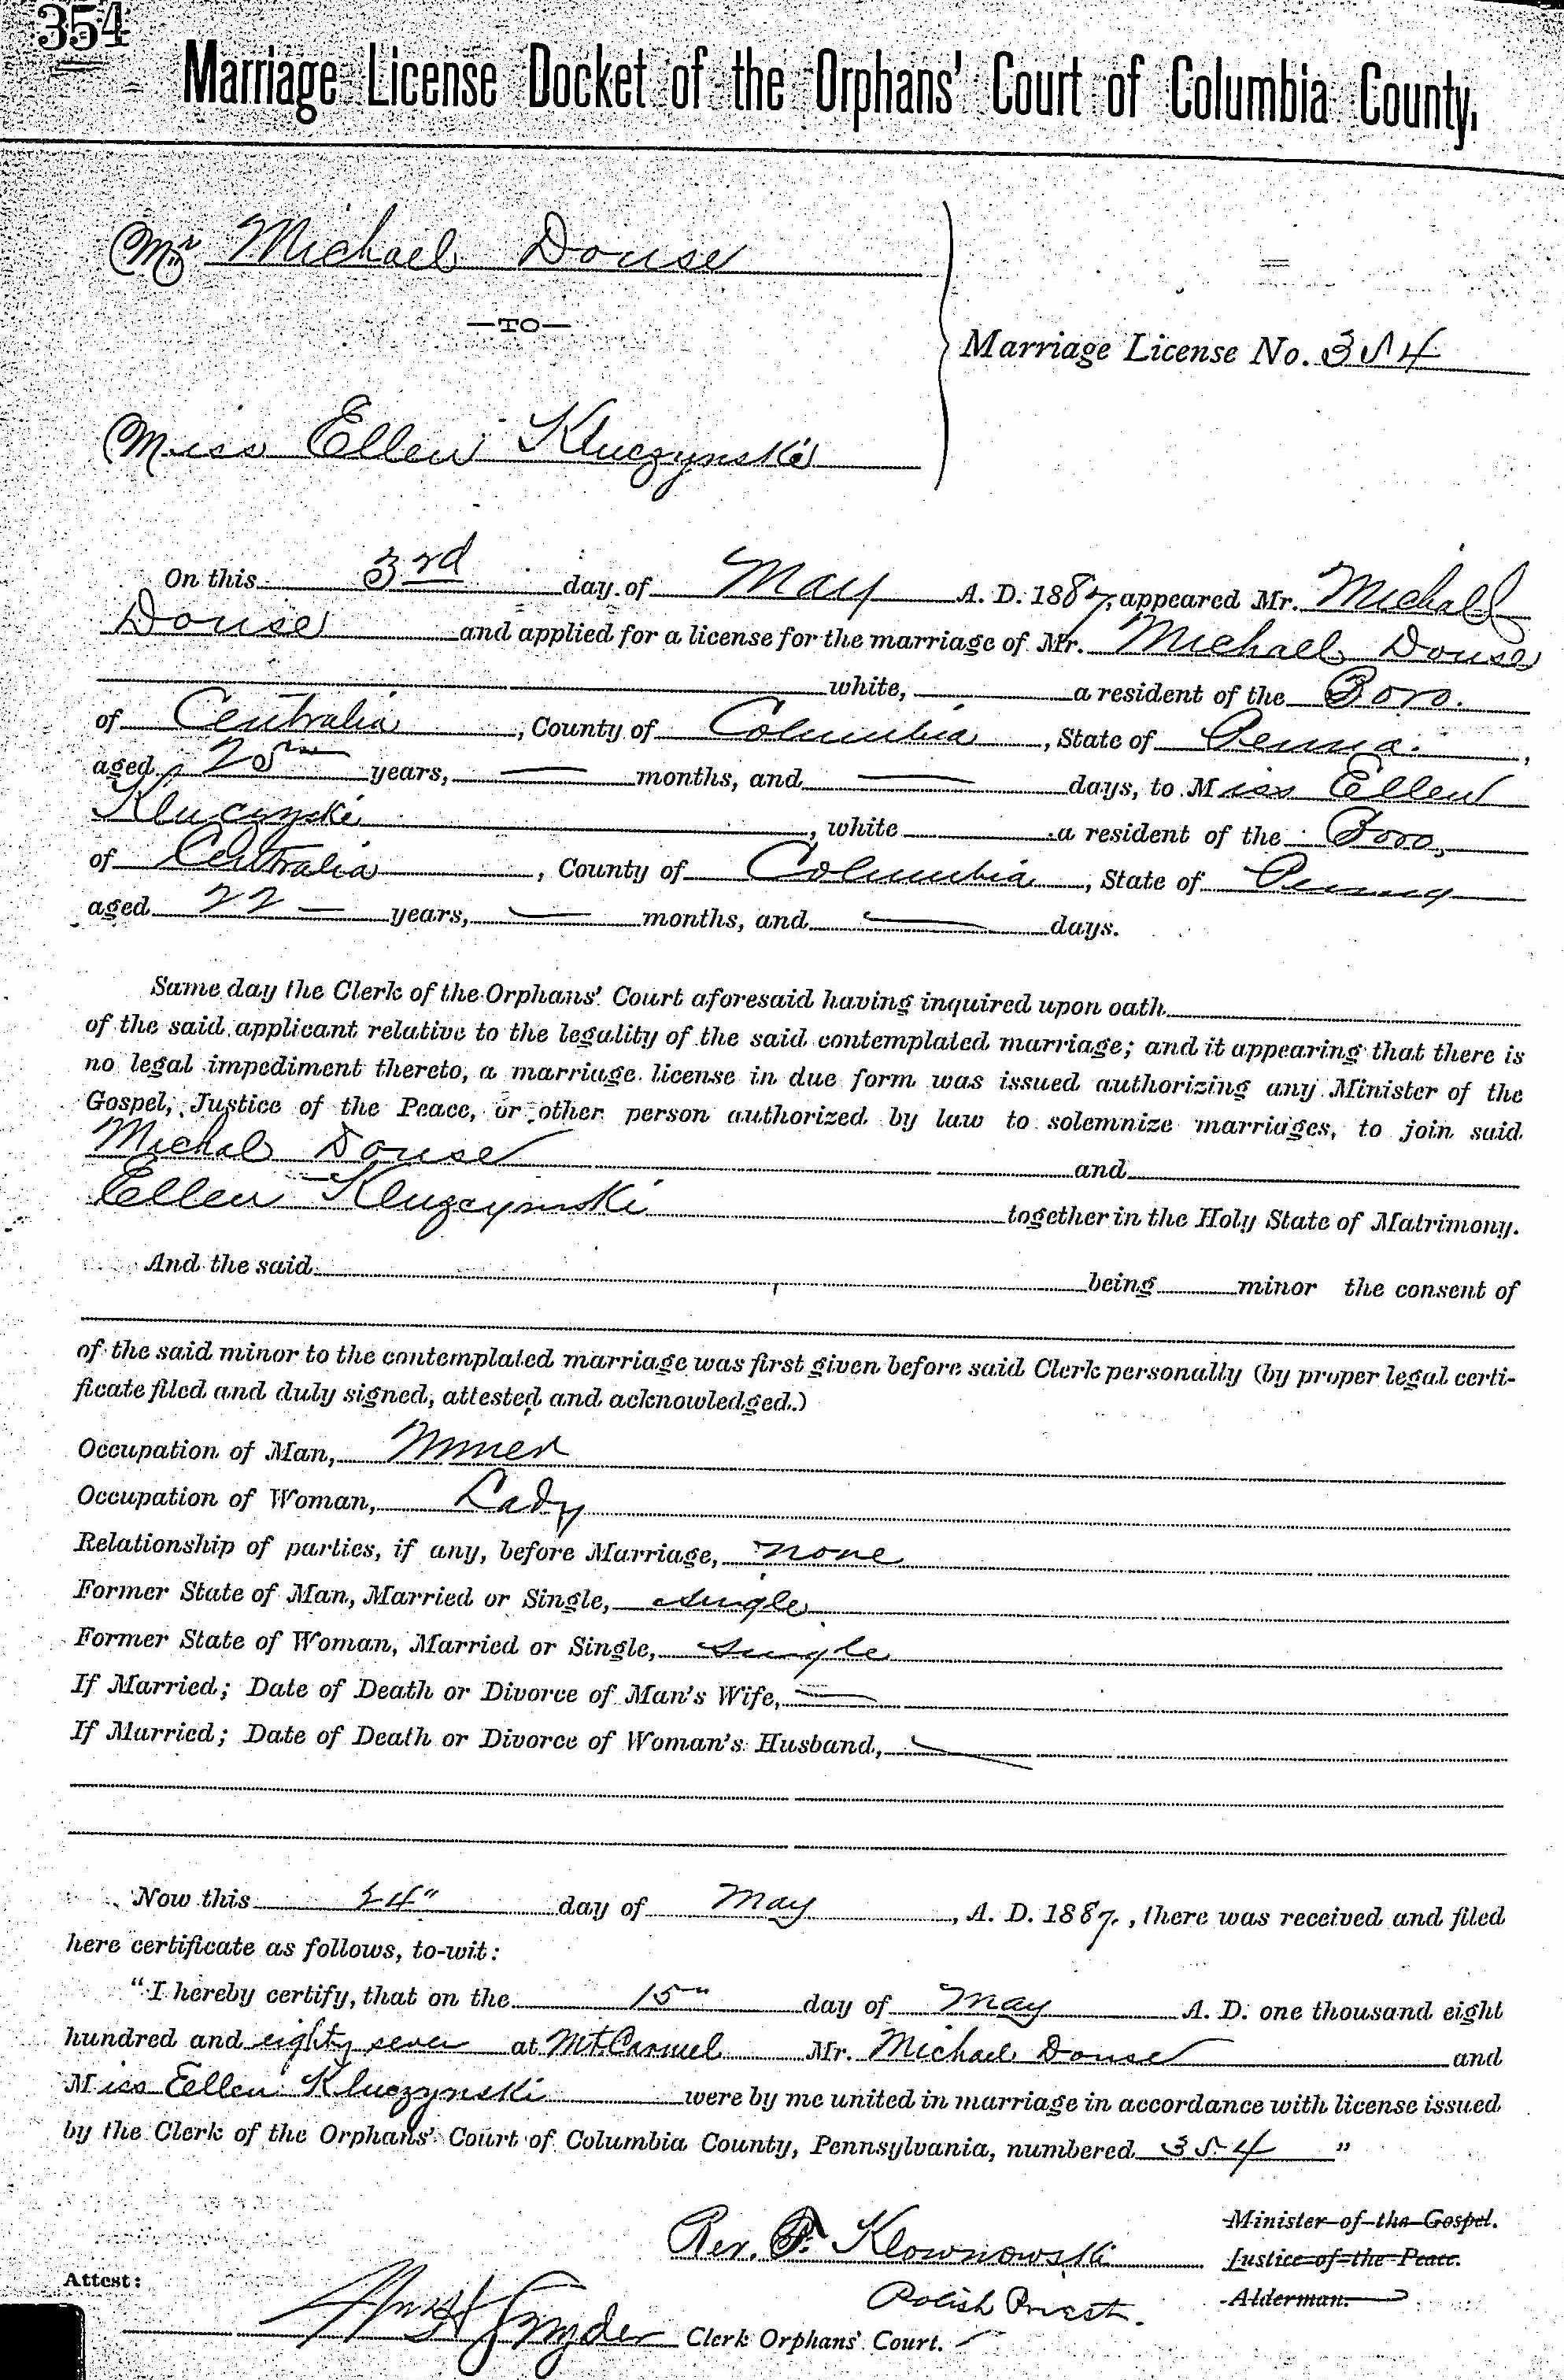 354
Marriage License Docket of the Orphans' Court of Columbia County,
Mr Michael Douse
—TO—
Marriage License No. 354
Miss Ellen Kluczynski
On this 3rd day of May A. D. 1887, appeared Mr. Michael
Douse and applied for a license for the marriage of Mr. Michael Douse
white, a resident of the Boro.
of Centralia, County of Columbia, State of Penna.,
aged 25 years, — months, and — days, to Miss Ellen
Kluczyski, white a resident of the Boro,
of Centralia, County of Columbia, State of Penna
aged 22 — years, — months, and — days.
Same day the Clerk of the Orphans' Court aforesaid having inquired upon oath
of the said applicant relative to the legality of the said contemplated marriage; and it appearing that there is
no legal impediment thereto, a marriage license in due form was issued authorizing any Minister of the
Gospel, Justice of the Peace, or other person authorized by law to solemnize marriages, to join said
Michal Douse and
Ellen Kluzcynski together in the Holy State of Matrimony.
And the said being minor the consent of
of the said minor to the contemplated marriage was first given before said Clerk personally (by proper legal certi-
ficate filed and duly signed, attested and acknowledged.)
Occupation of Man, Miner
Occupation of Woman, Lady
Relationship of parties, if any, before Marriage, none
Former State of Man, Married or Single, single
Former State of Woman, Married or Single, single
If Married; Date of Death or Divorce of Man's Wife, —
If Married; Date of Death or Divorce of Woman's Husband, —
Now this 24" day of May, A. D. 1887, there was received and filed
here certificate as follows, to-wit:
"I hereby certify, that on the 15" day of May A. D. one thousand eight
hundred and eighty seven at Mt. Carmel Mr. Michael Douse and
Miss Ellen Kluczynski were by me united in marriage in accordance with license issued
by the Clerk of the Orphans' Court of Columbia County, Pennsylvania, numbered 354 "
Rev. F. Klownowski
Minister of the Gospel.
Justice of the Peace.
Alderman.
Polish Priest.
Attest:
Wm H Snyder Clerk Orphans' Court.